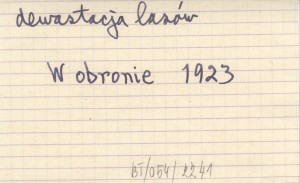 dewastacja lasów
W obronie 1923
BT/054/2241